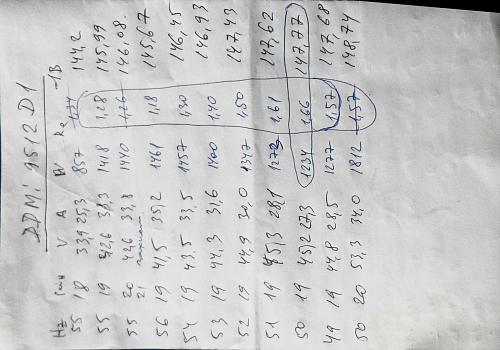 DDMi 9512 D1
Hz V A W Kg -1B
55 18 33,9 25,3 857 144,2
55 19 42,6 33,3 1418 1,28 145,99
55 20 42,6 33,8 1440 1,26 146,08
21
56 19 41,5 35,2 1461 1,18 145,67
54 19 43,5 33,5 1457 1,30 146,45
53 19 44,3 31,6 1400 1,40 146,93
52 19 44,9 30,0 1347 1,50 147,43
51 19 45,3 28,1 1272 1,61 147,62
50 19 45,2 27,3 1234 1,66 147,77
49 19 44,8 28,5 1277 1,57 147,68
50 20 53,3 34,0 1812 1,57 148,74